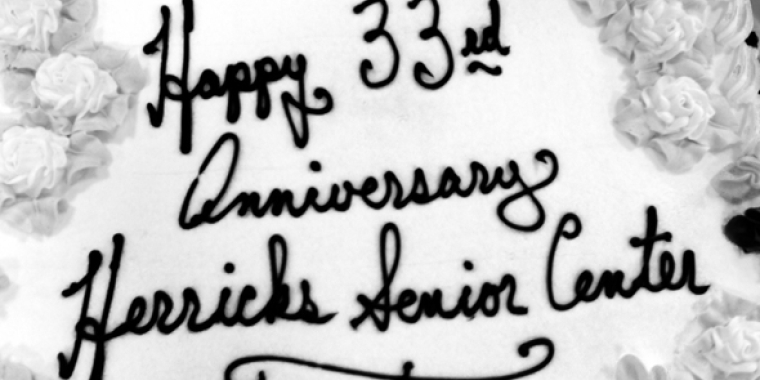 Happy 33rd
Anniversary
Herricks Senior Center